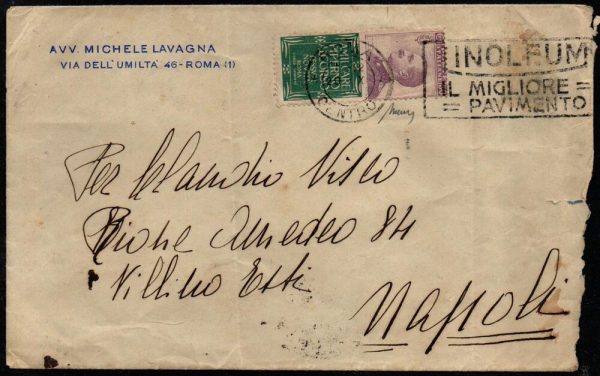 AVV. MICHELE LAVAGNA
VIA DELL'UMILTÀ 46 - ROMA (1)
CENTRO
INOLEUM
IL MIGLIORE
= PAVIMENTO
Per Claudio Visco
Rione Amedeo 84
Villino Esti
Napoli